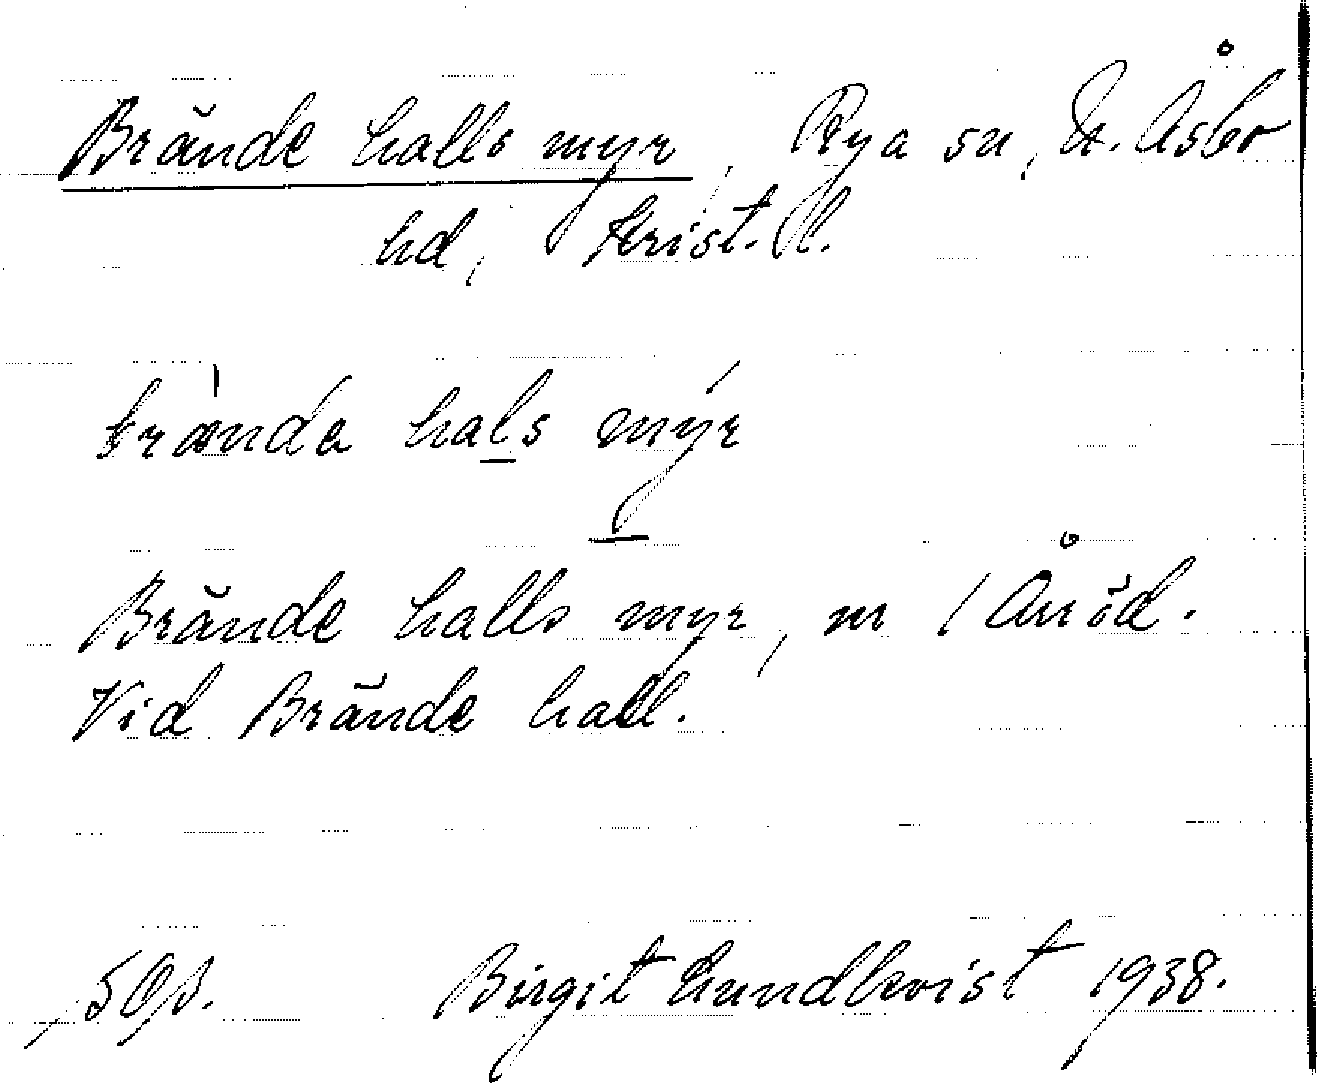 Brände halls myr, Rya sn, N. Åsbo
hd, Krist. l.
brända hals mýr
Brände halls myr, m / Åviöd.
Vid Brände hall.
Birgit Lundkvist 1938.